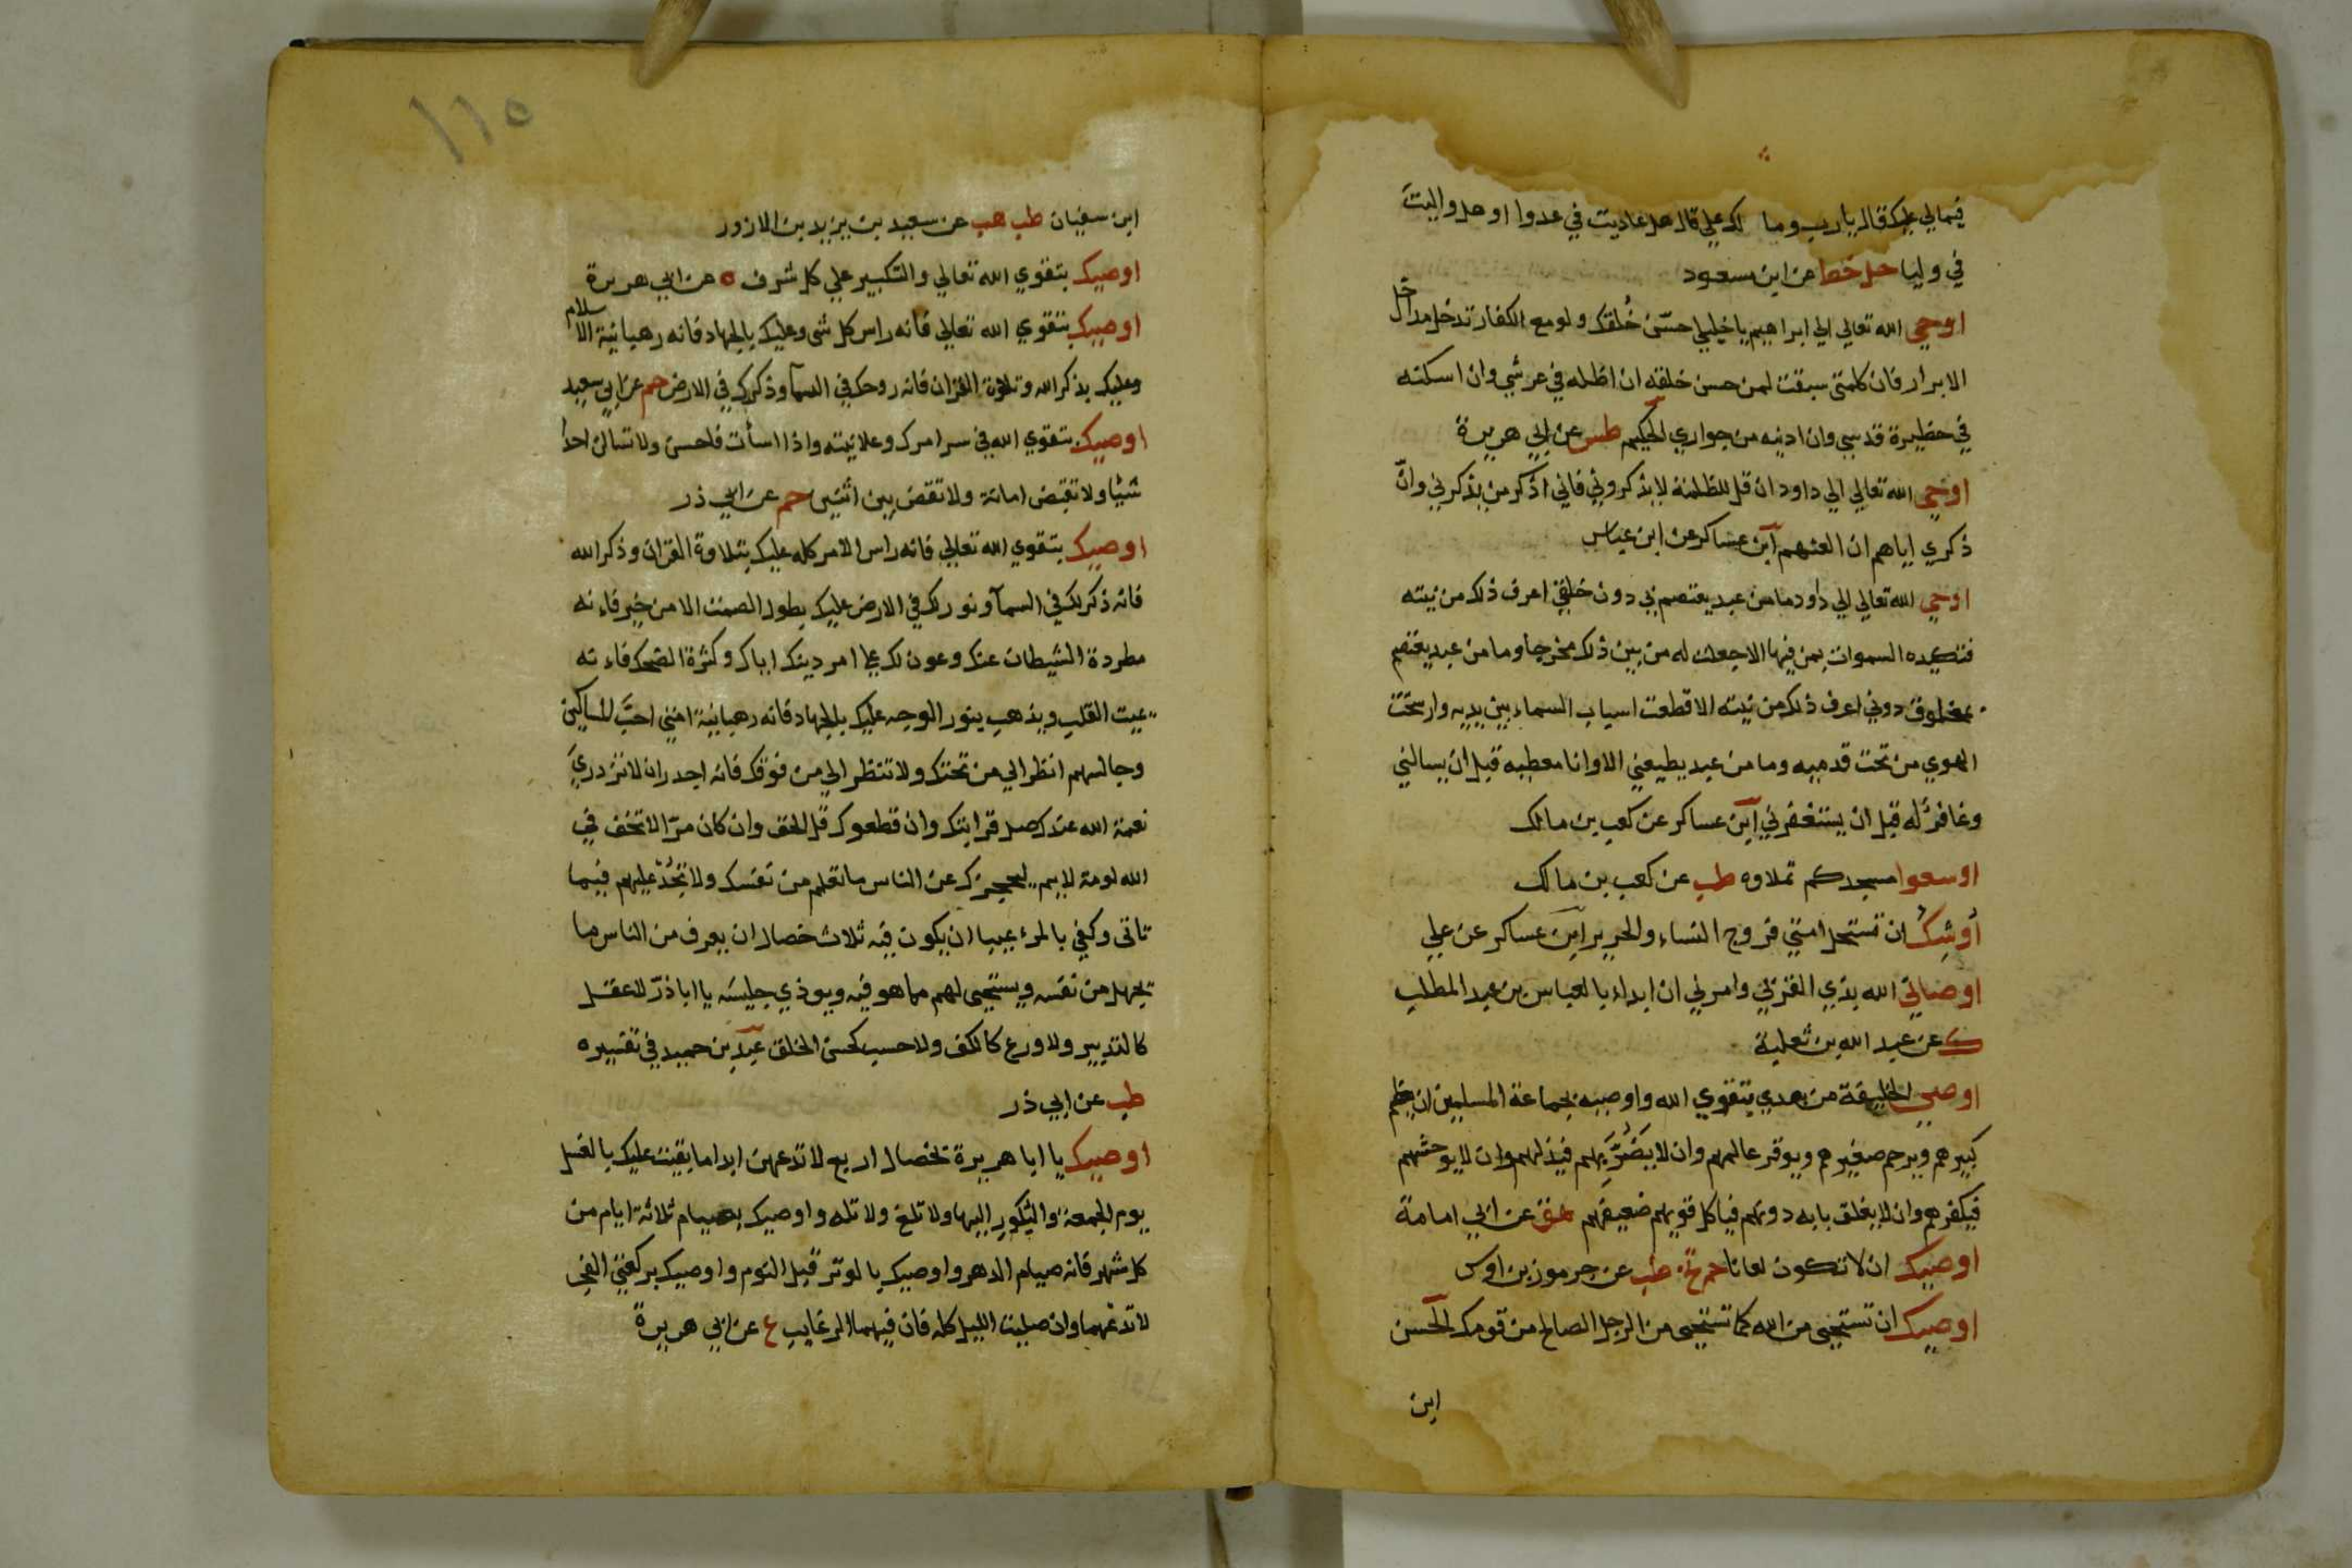 فيمالي عليك قال يارب وما لك علي قال هل عاديت في عدوا او هل واليت
في وليا حل خط عن ابن مسعود
اوحي الله تعالي الي ابراهيم يا خليلي حسّن خُلقك ولو مع الكفار تدخل مداخل
الابرار فان كلمتي سبقت لمن حسن خلقه ان اظله في عرشي وان اسكنه
في حظيرة قدسي وان ادنيه من جواري الحكيم طس عن ابي هريرة
اوحي الله تعالي الي داود ان قل للظلمة لا يذكروني فاني اذكر من يذكرني وانّ
ذكري اياهم ان العنهم ابن عساكر عن ابن عباس
اوحي الله تعالي الي داود ما من عبد يعتصم بي دون خلقي اعرف ذلك من نيته
فتكيده السموات بمن فيها الا جعلت له من بين ذلك مخرجا وما من عبد يعتصم
بمخلوق دوني اعرف ذلك من نيته الا قطعت اسباب السماء بين يديه وارسخت
الهوي من تحت قدميه وما من عبد يطيعني الا وانا معطيه قبل ان يسالني
وغافر له قبل ان يستغفرني ابن عساكر عن كعب بن مالك
اوسعوا مسجدكم تملاوه طب عن كعب بن مالك
أوشك ان تستحل امتي فروج النساء والحرير ابن عساكر عن علي
اوصاني الله بذي القربي وامرني ان ابدا بالعباس بن عبد المطلب
ك عن عبد الله بن ثعلبة
اوصي الخليفة من بعدي بتقوي الله واوصيه بجماعة المسلمين ان يعظم
كبيرهم ويرحم صغيرهم ويوقر عالمهم وان لا يضرّ بهم فيذلهم وان لا يوحشهم
فيكفرهم وان لا يغلق بابه دونهم فياكل قويهم ضعيفهم هق عن ابي امامة
اوصيك ان لا تكون لعانا حم تخ طب عن جرموز بن اوس
اوصيك ان تستحيي من الله كما تستحيي من الرجل الصالح من قومك الحسن
ابن
١١٥
ابن سفيان طب هب عن سعيد بن يزيد بن الازور
اوصيك بتقوي الله تعالي والتكبير علي كل شرف ه عن ابي هريرة
اوصيك بتقوي الله تعالي فانه راس كل شي وعليك بالجهاد فانه رهبانية الاسلام
وعليك بذكر الله وتلاوة القران فانه روحك في السمآ وذكرك في الارض حم عن ابي سعيد
اوصيك بتقوي الله في سر امرك وعلانيته واذا اسأت فاحسن ولا تسالن احدا
شيئا ولا تقبض امانة ولا تقض بين اثنين حم عن ابي ذر
اوصيك بتقوي الله تعالي فانه راس الامر كله عليك بتلاوة القران وذكر الله
فانه ذكر لك في السمآ ونور لك في الارض عليك بطول الصمت الا من خير فاءنه
مطردة الشيطان عنك وعون لك علي امر دينك اياك وكثرة الضحك فاءنه
يميت القلب ويذهب بنور الوجه عليك بالجهاد فانه رهبانية امتي احبَّ المساكين
وجالسهم انظر الي من تحتك ولا تنظر الي من فوقك فانه اجدر ان لا تزدريَ
نعمة الله عندك صل قرابتك وان قطعوك قل الحق وان كان مرّا لا تخف في
الله لومة لايم ليحجزك عن الناس ما تعلم من نفسك ولا تجُدْ عليهم فيما
تاتي وكفي بالمرء عيبا ان يكون فيه ثلاث خصال ان يعرف من الناس ما
يجهل من نفسه ويستحيي لهم مما هو فيه ويوذي جليسه يا اباذرّ لا عقل
كالتدبير ولا ورع كالكف ولا حسب كحسن الخلق عبد بن حميد في تفسيره
طب عن ابي ذر
اوصيك يا ابا هريرة بخصال اربع لا تدعهن ابدا ما بقيت عليك بالغسل
يوم الجمعة والبكور اليها ولا تلغ ولا تله واوصيك بصيام ثلاثة ايام من
كل شهر فانه صيام الدهر واوصيك بالوتر قبل النوم واوصيك بركعتي الفجر
لا تدعهما وان صليت الليل كله فان فيهما الرغايب ع عن ابي هريرة